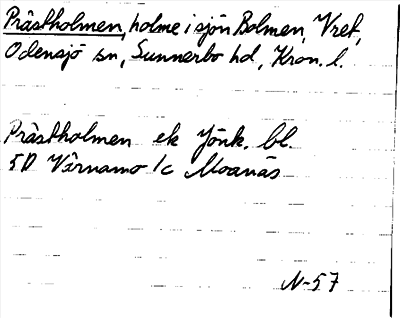 Prästholmen, holme i sjön Bolmen, Vret,
Odensjö sn, Sunnerbo hd, Kron. l.
Prästholmen ek Jönk. bl.
5D Värnamo 1c Moanäs
N-57